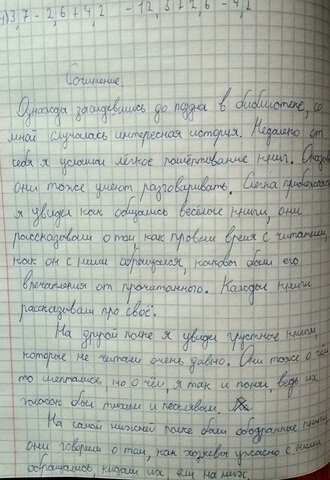 3,7 - 2,6 + 4,2 - 12,5 + 2,6 - 4,2
Сочинение
Однажды засидевшись до поздна в библиотеке, со
мной случилась интересная история. Недалеко от
себя я услышал лёгкое пошёптывание книг.
они тоже умеют разговаривать. Слегка
я увидел как общались весёлые книги, они
рассказывали о том как провели время с читателем,
как он с ними обращался, каковы были его
впечатления от прочитанного. Каждые книги
рассказывали про своё.
На другой полке я увидел грустные книги,
которые не читали очень давно. Они тоже о чём
то шептались, но о чём, я так и понял, ведь их
голоски были тихими и
На самой нижней полке были ободранные книги,
они говорили о том, как ужасно с ними
обращались, кидали их, ели на них,